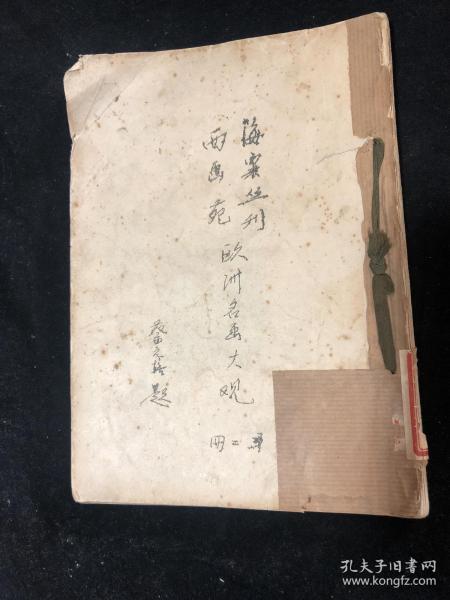 海粟丛刊
西画苑
欧洲名画大观
第二册
蔡元培题
孔夫子旧书网
www.kongfz.com